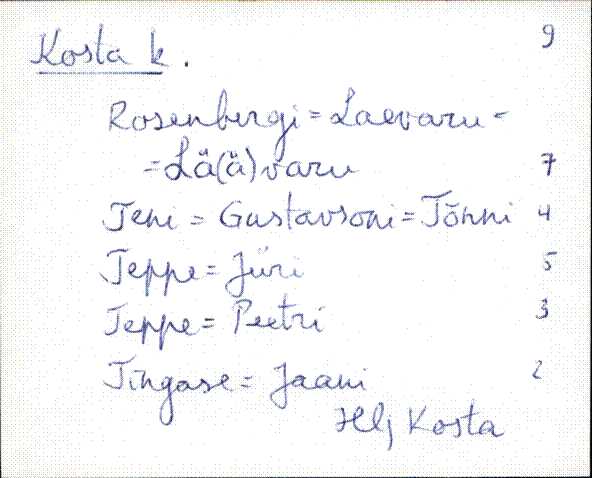 Kosta k. 9
Rosenbergi = Laevaru =
= Lä(ä)varu 7
Teni = Gustavsoni = Tõnni 4
Teppe = Jüri 5
Teppe = Peetri 3
Tingase = Jaani 2
Hlj Kosta